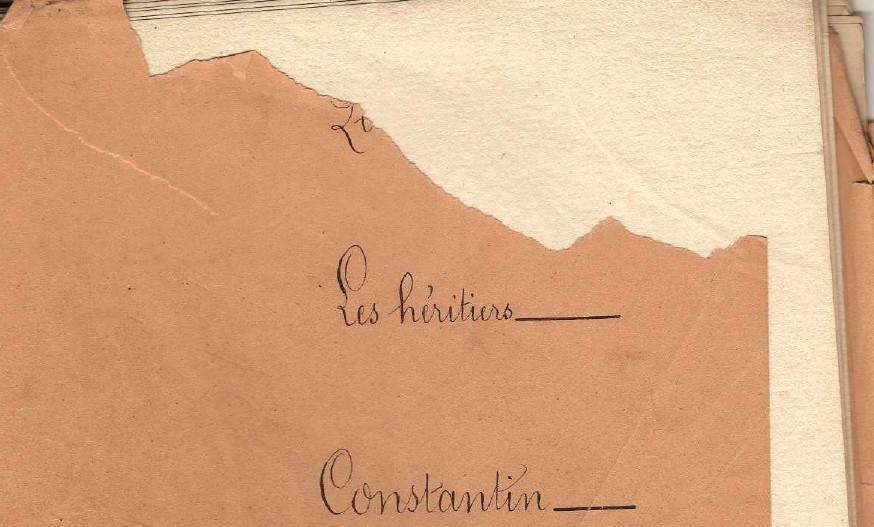 Les héritiers
Constantin